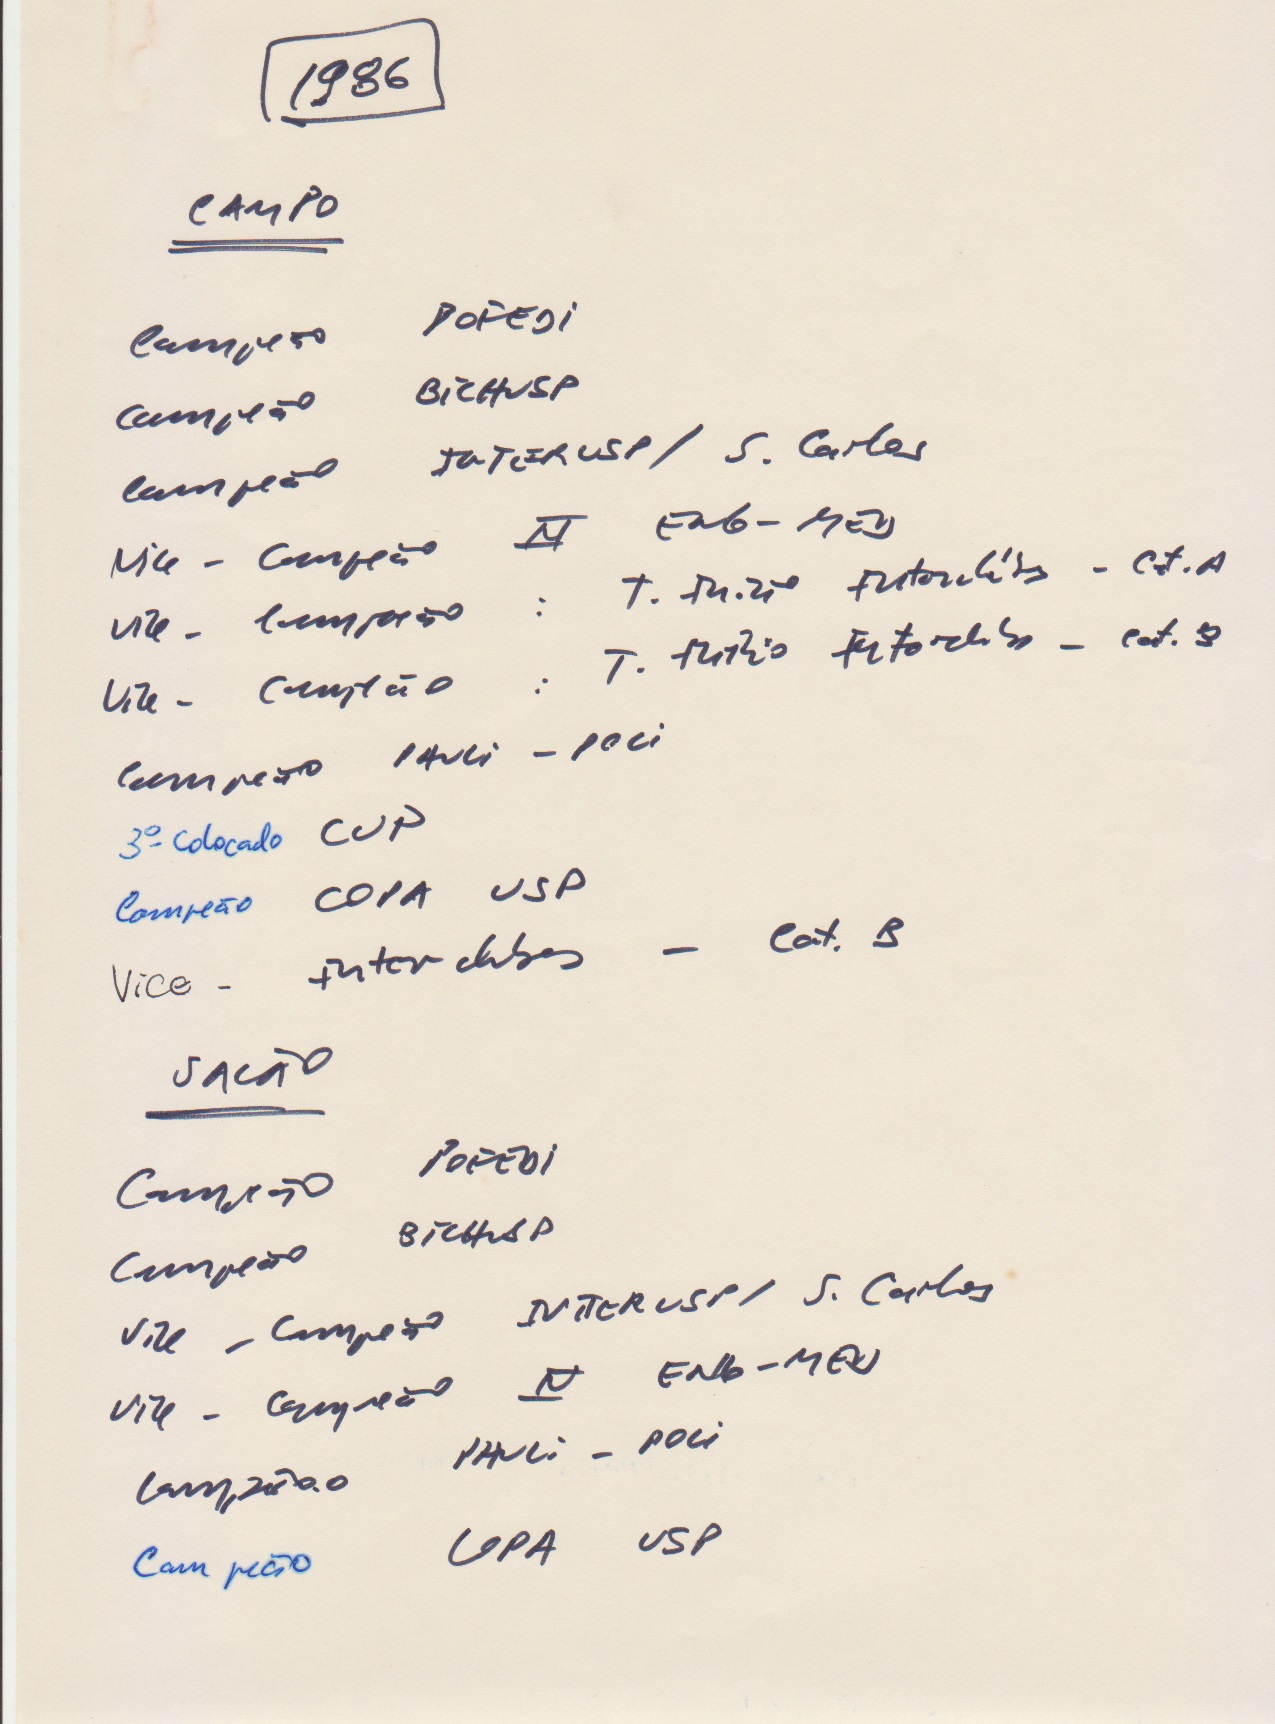 1986
CAMPO
Campeão POFEDI
Campeão BICHUSP
Campeão INTERUSP / S. Carlos
Vice - Campeão IV ENG - MED
Vice - Campeão : T. Início Interclubes - Cat. A
Vice - Campeão : T. Início Interclubes - Cat. B
Campeão PAULI - POLI
3º Colocado CUP
Campeão COPA USP
Vice - Interclubes - Cat. B
SALÃO
Campeão POFEDI
Campeão BICHUSP
Vice - Campeão INTERUSP / S. Carlos
Vice - Campeão IV ENG - MED
Campeão PAULI - POLI
Campeão COPA USP